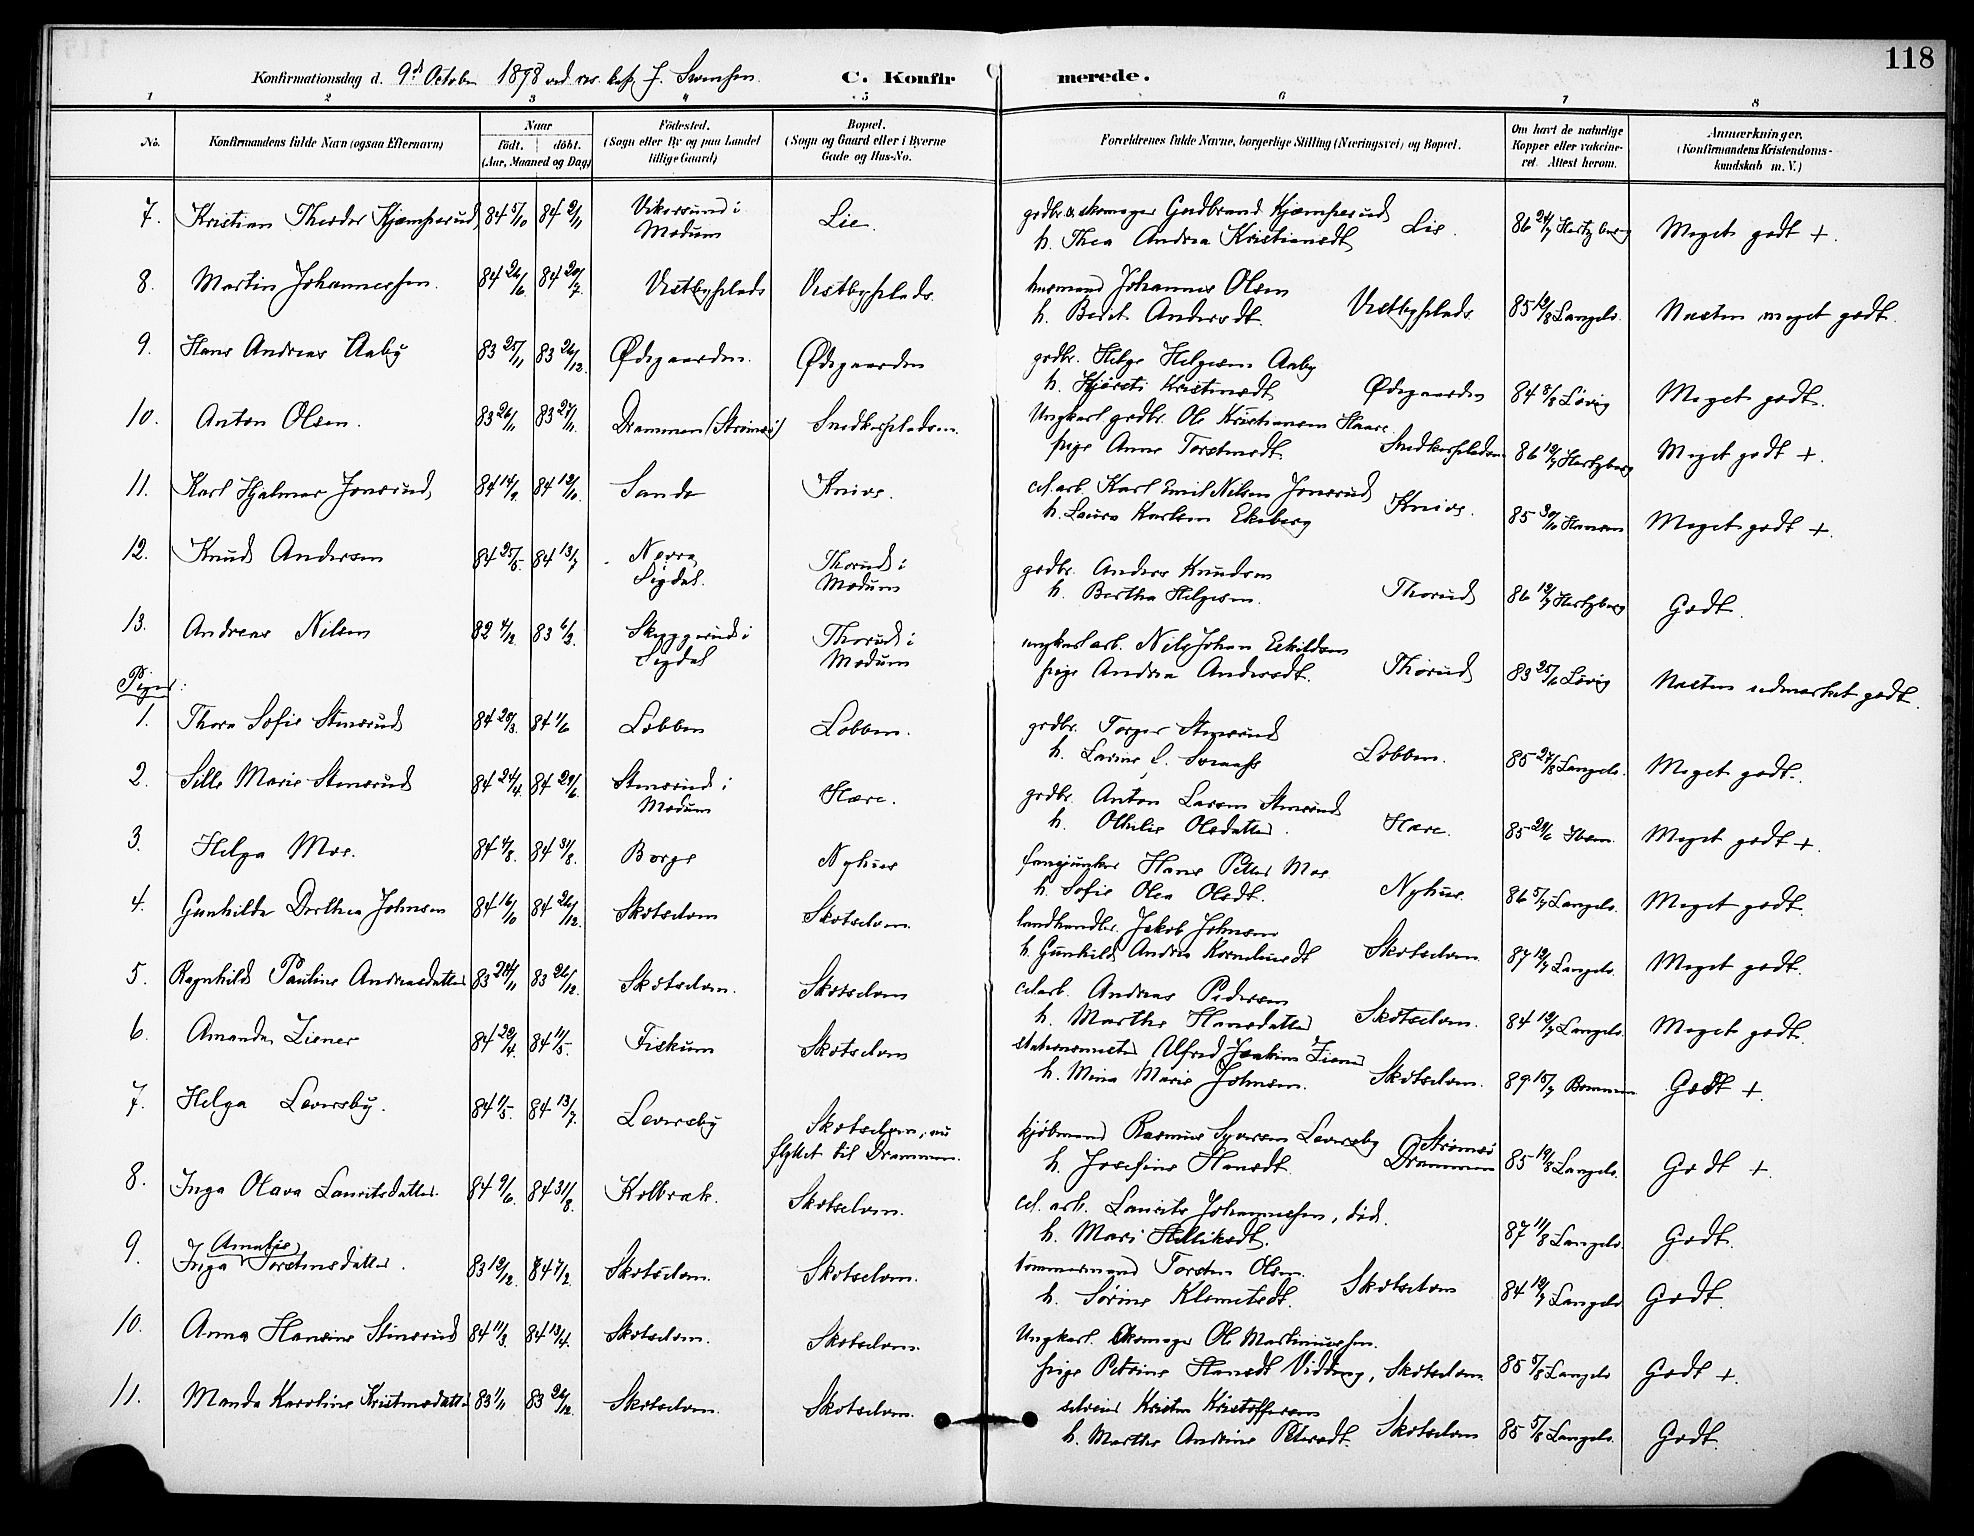 118
Konfirmationsdag d. 9de October 1898 ved res. kap. J. Svensen. C. Konfirmerede.
1 2 3 4 5 6 7 8
No. Konfirmandens fulde Navn (ogsaa Efternavn) Naar födt. döbt. (Aar, Maaned og Dag) Födested. (Sogn eller By og paa Landet tillige Gaard) Bopæl. (Sogn og Gaard eller i Byerne Gade og Hus-No. Forældrenes fulde Navne, borgerlige Stilling (Næringsvei) og Bopæl. Om havt de naturlige Kopper eller vakcineret. Attest herom. Anmærkninger. (Konfirmandens Kristendomskundskab m. V.)
7. Kristian Theodor Kjæmperud 84 5/10 84 2/11 Vikersund i Modum Lie. grdbr. & skomager Gudbrand Kjæmperud
h. Thea Andrea Kristiansdt. Lie. 86 24/7 Hertzberg Meget godt +.
8. Martin Johannessen. 84 26/6 84 20/7. Vestbyplads Vestbyplads. husmand Johannes Olsen
h. Berit Andersdt. Vestbyplads 85 19/8 Langelv. Næsten meget godt.
9. Hans Andreas Aaby 83 25/11 83 26/12. Ødegaarden. Ødegaarden grdbr. Helge Helgesen Aaby
h. Kjersti Kristensdt. Ødegaarden 84 8/8 Lövig Meget godt.
10. Anton Olsen. 83 26/1 83 27/11. Drammen (Strömsö) Snedkerpladsen. Ungkarl grdbr. Ole Kristiansen Haare
pige Anne Torstensdt. Snedkerpladsen 86 19/7 Hertzberg Meget godt +.
11. Karl Hjalmar Jonsrud 84 14/9. 84 12/10. Sande Knive. cel. arb. Karl Emil Nilsen Jonsrud
h. Laura Karlsen Ekeberg Knive. 85 30/10 Hansen Meget godt +
12. Knud Andersen 84 25/5. 84 13/7 Nerra Sigdal. Thorud i Modum grdbr. Anders Knudsen
h. Bertha Helgesen. Thorud 86 19/7 Hertzberg Godt.
13. Andreas Nilsen 82 4/12. 83 6/3. Skyggerud i Sigdal Thorud i Modum ungkarl arb. Nils Johan Eskildsen
pige Andrea Andersdt. Thorud 83 25/6 Lövig Næsten udmærket godt.
Piger:
1. Thora Sofie Stensrud 84 20/3. 84 1/6 Lobben Lobben. grdbr. Torger Stensrud
h. Larine L. Lobben. 85 27/8 Langelv. Meget godt.
2. Sille Marie Stensrud 84 24/4. 84 29/6. Stensrud i Modum Hære. grdbr. Anton Larsen Stensrud
h. Othilie Olsdatter. Hære. 85 29/6 Meget godt +.
3. Helga Moe. 84 4/8. 84 31/8. Borge Nyhus fanejunker Hans Petter Moe
h. Sofie Olea Olsdt. Nyhus. 86 5/7 Langelv. Meget godt.
4. Gunhilda Dorthea Johnsen 84 16/10 84 26/12. Skotselven Skotselven. landhandler Jakob Johnsen
h. Gunhild Andrea Korneliusdt. Skotselven. 87 19/7 Langelv. Meget godt.
5. Ragnhild Pauline Andreasdatter 83 24/11 83 26/12. Skotselven. Skotselven cel. arb. Andreas Pedersen
h. Marthe Hansdatter Skotselven. 84 19/9 Langelv. Meget godt.
6. Amanda Ziener 84 29/4. 84 11/5. Fiskum Skotselven stationsmester Alfred Joakim Ziener
h. Mina Marie Johnsen. Skotselven. 89 15/7 Godt +.
7. Helga Leversby. 84 11/5. 84 13/7. Leversby Skotselven, nu flyttet til Drammen. kjöbmand Rasmus Syversen Leversby
h. Josefine Hansdt. Strömsö Drammen 85 19/8 Langelv. Godt +
8. Inga Olava Lauritsdatter. 84 9/6. 84 31/8. Kolbræk. Skotselven. cel. arb. Laurits Johannessen, död.
h. Mari Helliksdt. 87 11/8 Langelv. Godt.
9. Inga Amalie Torstensdatter. 83 19/12. 84 7/2. Skotselven. Skotselven. tömmermand Torsten Olsen.
h. Sörine Klemetsdt. Skotselven 84 19/9 Langelv Godt.
10. Anna Hansine Stensrud 84 11/3. 84 13/4. Skotselven. Skotselven. Ungkarl. skomager Ole Martiniussen.
pige Petrine Hansdt. Skotselven 85 5/8 Langelv Godt +.
11. Manda Karoline Kristensdatter 83 1/11 83 26/12. Skotselven. Skotselven. Kristen Kristoffersen
h. Marthe Andrine Petersdt. Skotselven 85 5/8 Langelv. Godt.